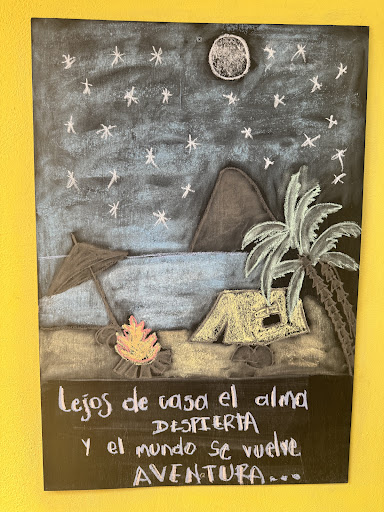 Lejos de casa el alma
DESPIERTA
y el mundo se vuelve
AVENTURA...